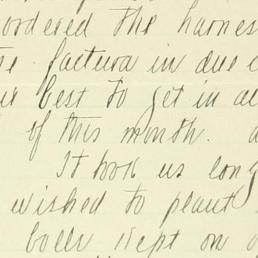 ordered the harness
factura in due
best to get in
of this month.
It took us long
wished to plant
kept on